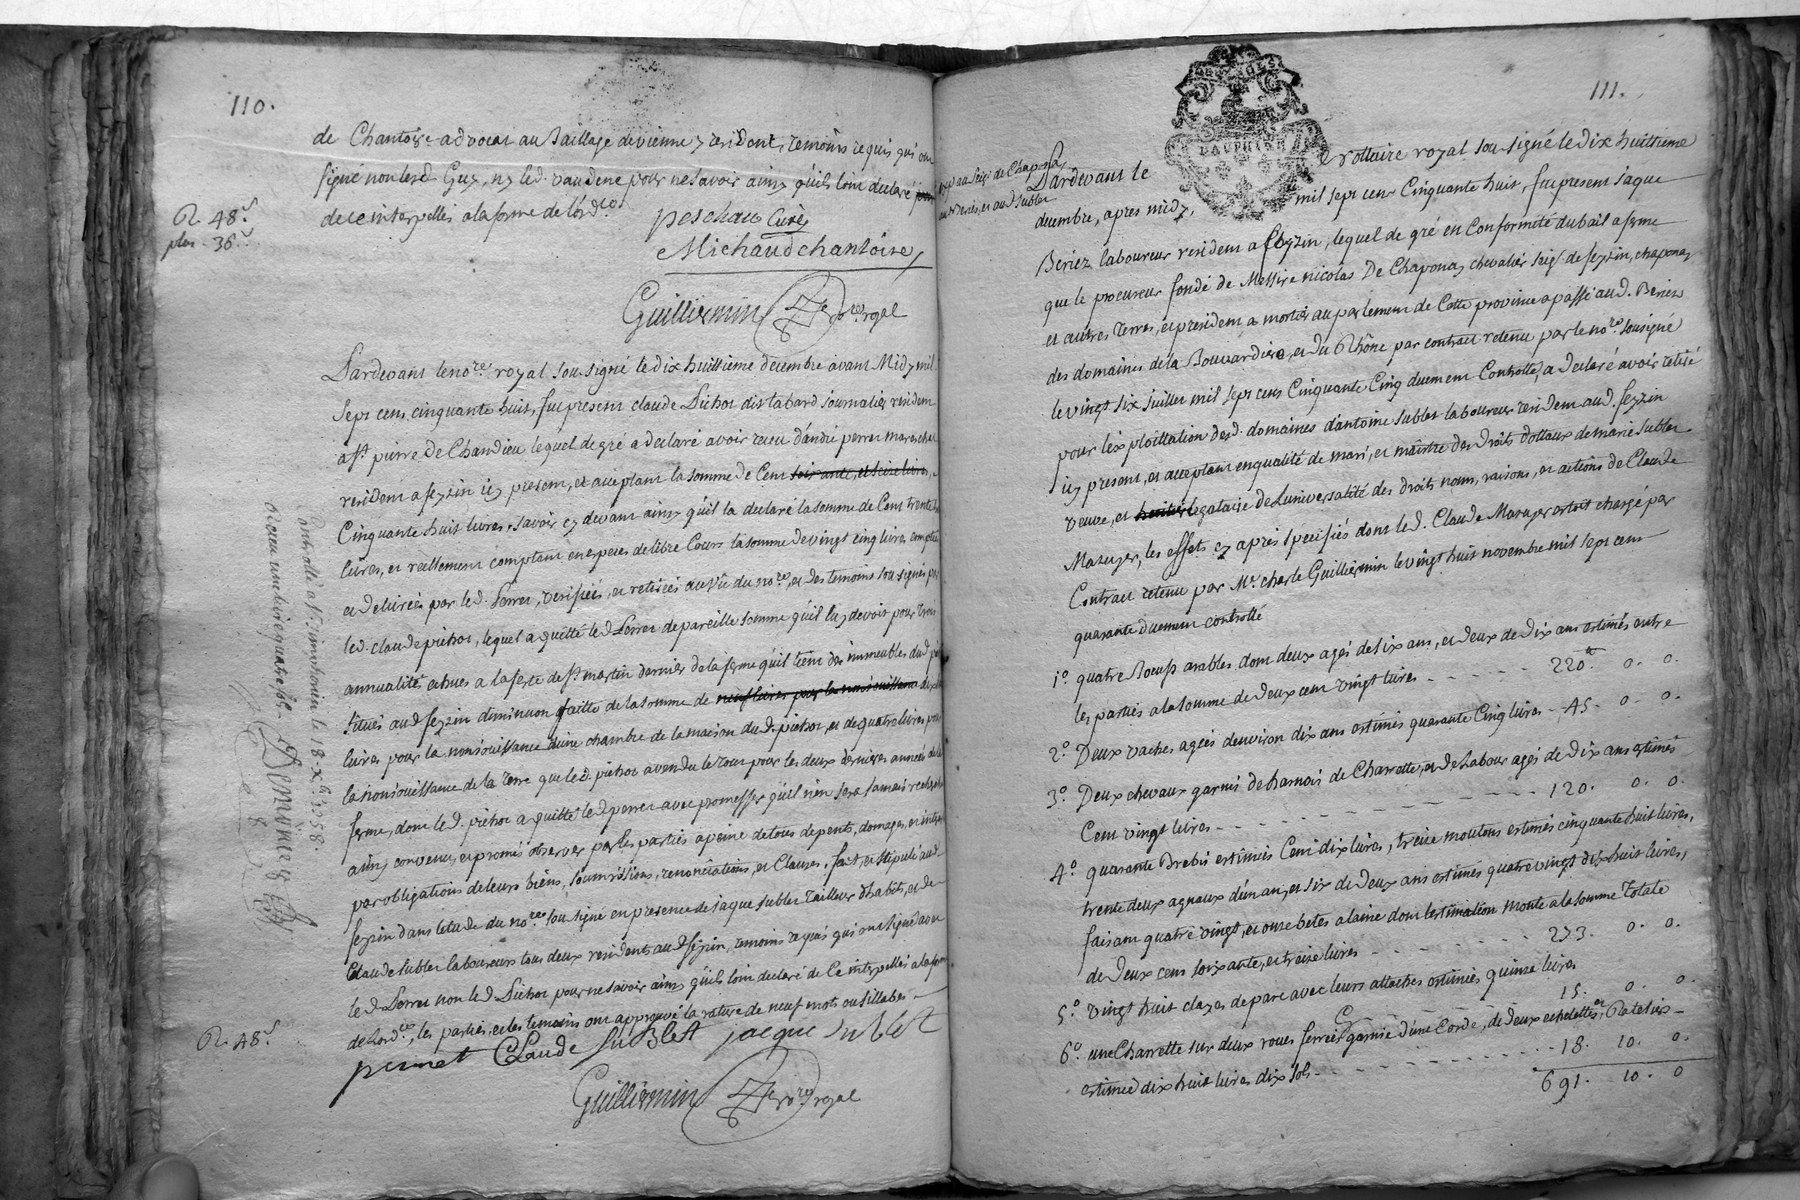 110.
de Chantoise advocat au Baillage de vienne y resident, temoins requis qui ont
signé non lesd. Guy, ny led. vaudene pour ne savoir ainsy qu'ils l'ont declaré
de ce interpellés a la forme de l'ord.ce
R. 48 s
plus 36 s
peschau Curé
Michaud chantoise
Guilliermin no.re royal
Pardevant le no.re royal sousigné le dix huitieme decembre avant Midy mil
sept cens cinquante huit, fut present claude Pichot dit tabard journalier resident
a S.t pierre de Chandieu lequel de gré a declaré avoir receu d'andré perret marechal
resident a feyzin icy present, et acceptant la somme de Cent soixante, et seize livres,
Cinquante huit livres, savoir cy devant ainsy qu'il l'a declaré la somme de Cent trente trois
livres, et reellement comptant en especes de libre Cours la somme de vingt cinq livres comptées
et delivrées par led. Perret, verifiées, et retirées au vû du no.re, et des temoins sousignés par
led. claude pichot, lequel a quitté led. Perret de pareille somme qu'il luy devoit pour trois
annualités echues a la feste de S.t martin dernier de la ferme qu'il tient des immeubles dud. pichot
situés aud. feyzin diminution faitte de la somme de neuf livres pour la nonjouissance
livres pour la nonjouissance d'une chambre de la maison dud. pichot, et de quatre livres pour
la nonjouissance de la terre que led. pichot a vendu le tout pour les deux dernieres années de la
ferme, dont led. pichot a quitté led. perret avec promesses qu'il n'en sera jamais recherché
ainsy convenu, et promis observer par les parties a peine de tous depents, domages, et interets
par obligations de leurs biens, soumissions, renonciations, et Clauses, fait et stipulé aud.
feyzin dans l'etude du no.re sousigné en presence de jaque sublet tailleur d'habits, et de
Claude sublet laboureur tous deux residents aud. feyzin, temoins requis qui ont signé avec
led. Perret non led. Pichot pour ne savoir ainsy qu'ils l'ont declaré de ce interpellés a la forme
de l'ord.ce, les parties, et les temoins ont approuvé la rature de neuf mots ou sillabes
R. 48 s
perret Claude Sublet jacque sublet
Guilliermin no.re royal
Controllé a S.t simphorien le 18 x.bre 1758.
receu une livre quatre sols
111.
DAUPHINÉ
Pardevant le Nottaire royal sousigné le dix huitieme
decembre, apres midy, mil sept cens Cinquante huit, fut present jaque
Beriez laboureur resident a feyzin, lequel de gré en Conformité du bail a ferme
que le procureur fondé de Messire nicolas De Chaponay chevalier seig.r de feyzin, chaponay
et autres terres, et president a mortier au parlement de Cette province a passé aud. Beriez
des domaines de la Bouvardiere, et du Rhône par contract retenu par le no.re sousigné
le vingt six juillet mil sept cens Cinquante Cinq duement Controllé, a declaré avoir retiré
pour l'exploittation desd. domaines d'antoine sublet laboureur resident aud. feyzin
icy present, et acceptant en qualité de mari, et maitre des droits dottaux de marie sublet
veuve, et heritiere legataire de l'universalité des droits noms, raisons, et actions de Claude
Mazuyer, les effets cy après specifiés dont led. Claude Mazuyer estoit chargé par
Contract retenu par M.e charle Guilliermin le vingt huit novembre mil sept cent
quarante duement controllé
1.o quatre Boeufs arables dont deux agés de six ans, et deux de dix ans estimés entre
les parties a la somme de deux cent vingt livres - - - - - 220.lt 0. 0.
2.o Deux vaches agées d'environ dix ans estimées quarante Cinq livres - 45. 0. 0.
3.o Deux chevaux garnis de harnois de Charrette, et de Labour agés de dix ans estimés
Cent vingt livres - - - - - - - - - - 120. 0. 0.
4.o quarante Brebis estimées Cent dix livres, treize moutons estimés cinquante huit livres,
trente deux agnaux d'un an, et six de deux ans estimés quatre vingt dix huit livres,
faisant quatre vingt, et onze betes a laine dont l'estimation monte a la somme totale
de deux cens soixante, et treize livres - - - - - - 273. 0. 0.
5.o vingt huit clayes de parc avec leurs attaches estimées quinze livres 15. 0. 0.
6.o une Charrette sur deux roues ferrées garnie d'une Corde, de deux echelettes, et Ratelier
estimée dix huit livres dix sols - - - - - - - - - 18. 10. 0.
691. 10. 0